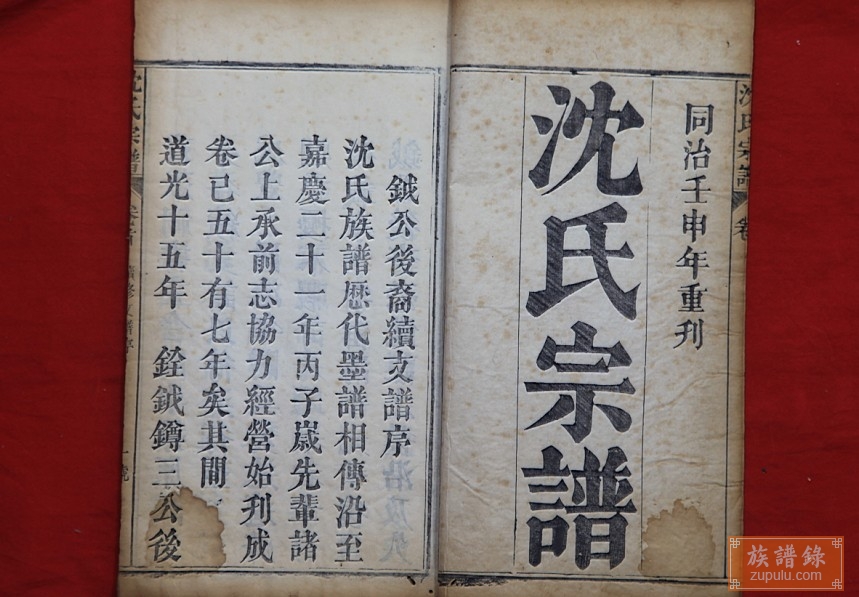 同治壬申年重刊
沈氏宗譜
鉞公後裔續支譜序
沈氏族譜歷代墨譜相傳沿至
嘉慶二十一年丙子歲先輩諸
公上承前志協力經營始刋成
卷已五十有七年矣其間
道光十五年 銓鉞鐏三公後
沈氏宗譜
沈氏宗譜 卷
族譜錄
zupulu.com